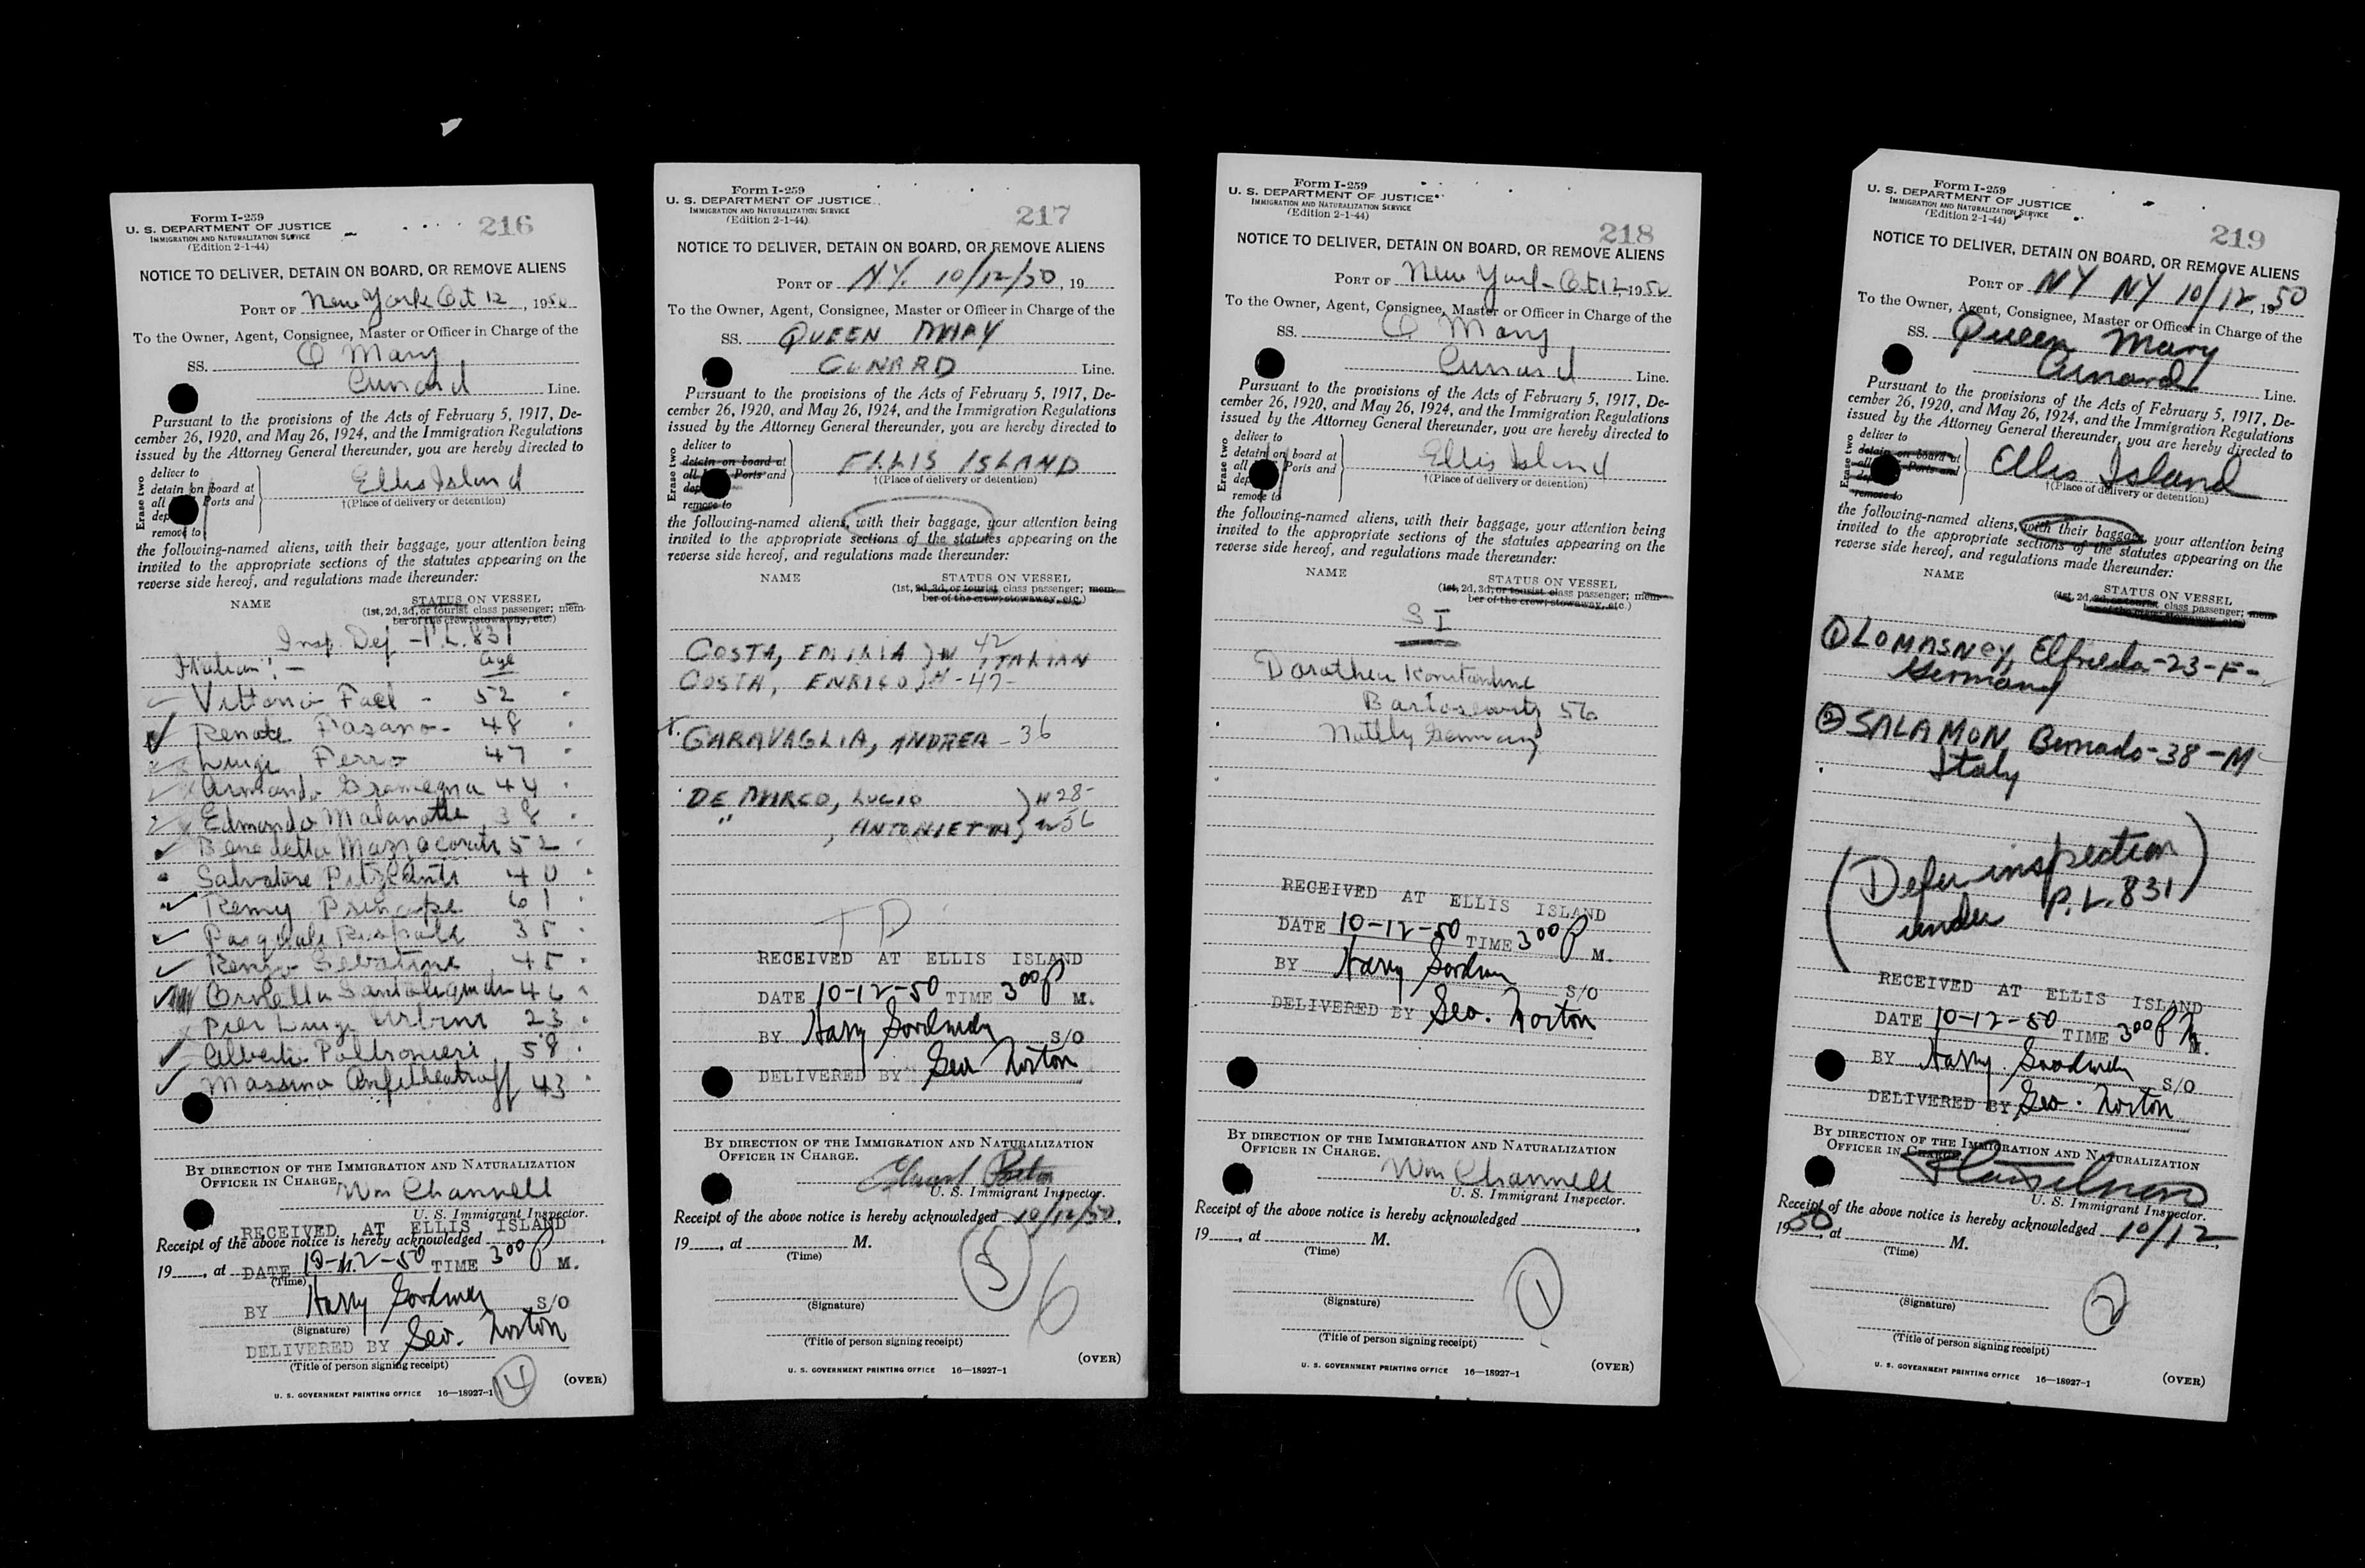 Form I-259
U. S. DEPARTMENT OF JUSTICE
IMMIGRATION AND NATURALIZATION SERVICE
(Edition 2-1-44)
216
NOTICE TO DELIVER, DETAIN ON BOARD, OR REMOVE ALIENS
PORT OF New York Oct 12, 1950
To the Owner, Agent, Consignee, Master or Officer in Charge of the
SS. Q Mary
Cunard Line.
Pursuant to the provisions of the Acts of February 5, 1917, De-
cember 26, 1920, and May 26, 1924, and the Immigration Regulations
issued by the Attorney General thereunder, you are hereby directed to
Erase two
deliver to
detain on board at
all Ports and
dep
remove to
Ellis Island
†(Place of delivery or detention)
the following-named aliens, with their baggage, your attention being
invited to the appropriate sections of the statutes appearing on the
reverse side hereof, and regulations made thereunder:
NAME STATUS ON VESSEL
(1st, 2d, 3d, or tourist class passenger; mem-
ber of the crew; stowaway, etc.)
Insp. Def - P.L. 831
Italian: - age
Vittorio Fael - 52
Renato Fasano - 48
Luigi Ferro 47
Armando Gramegna 44
Edmondo Malanotte 38
Benedetto Mazzacorati 52
Salvatore Pitzianti 40
Remy Principe 61
Pasquale Rispoli 35
Renzo Sabatini 45
Ornella Santoliquido 46
Pier Luigi Urbini 23
Alberto Poltronieri 58
Massimo Amfitheatrof 43
BY DIRECTION OF THE IMMIGRATION AND NATURALIZATION
OFFICER IN CHARGE.
Wm Channell
U. S. Immigrant Inspector.
RECEIVED AT ELLIS ISLAND
Receipt of the above notice is hereby acknowledged
19 , at DATE 10-12-50 TIME 3 00 P M.
(Time)
BY Harry Goodman S/O
(Signature)
DELIVERED BY Geo. Norton
(Title of person signing receipt)
14
(OVER)
U. S. GOVERNMENT PRINTING OFFICE 16—18927-1
Form I-259
U. S. DEPARTMENT OF JUSTICE
IMMIGRATION AND NATURALIZATION SERVICE
(Edition 2-1-44)
217
NOTICE TO DELIVER, DETAIN ON BOARD, OR REMOVE ALIENS
PORT OF N.Y. 10/12/50, 19
To the Owner, Agent, Consignee, Master or Officer in Charge of the
SS. QUEEN MARY
CUNARD Line.
Pursuant to the provisions of the Acts of February 5, 1917, De-
cember 26, 1920, and May 26, 1924, and the Immigration Regulations
issued by the Attorney General thereunder, you are hereby directed to
Erase two
deliver to
detain on board at
all Ports and
dep
remove to
ELLIS ISLAND
†(Place of delivery or detention)
the following-named aliens, with their baggage, your attention being
invited to the appropriate sections of the statutes appearing on the
reverse side hereof, and regulations made thereunder:
NAME STATUS ON VESSEL
(1st, 2d, 3d, or tourist class passenger; mem-
ber of the crew; stowaway, etc.)
COSTA, EMILIA W 42 ITALIAN
COSTA, ENRICO H - 47 -
GARAVAGLIA, ANDREA - 36
DE MARCO, LUCIO H 28 -
" , ANTONIETTA W 56
TD
RECEIVED AT ELLIS ISLAND
DATE 10-12-50 TIME 3 00 P M.
BY Harry Goodman S/O
DELIVERED BY Geo Norton
BY DIRECTION OF THE IMMIGRATION AND NATURALIZATION
OFFICER IN CHARGE.
U. S. Immigrant Inspector.
Receipt of the above notice is hereby acknowledged 10/12/50,
19 , at M.
(Time)
5
6
(Signature)
(Title of person signing receipt)
(OVER)
U. S. GOVERNMENT PRINTING OFFICE 16—18927-1
Form I-259
U. S. DEPARTMENT OF JUSTICE
IMMIGRATION AND NATURALIZATION SERVICE
(Edition 2-1-44)
218
NOTICE TO DELIVER, DETAIN ON BOARD, OR REMOVE ALIENS
PORT OF New York - Oct 12, 1950
To the Owner, Agent, Consignee, Master or Officer in Charge of the
SS. Q Mary
Cunard Line.
Pursuant to the provisions of the Acts of February 5, 1917, De-
cember 26, 1920, and May 26, 1924, and the Immigration Regulations
issued by the Attorney General thereunder, you are hereby directed to
Erase two
deliver to
detain on board at
all Ports and
dep
remove to
Ellis Island
†(Place of delivery or detention)
the following-named aliens, with their baggage, your attention being
invited to the appropriate sections of the statutes appearing on the
reverse side hereof, and regulations made thereunder:
NAME STATUS ON VESSEL
(1st, 2d, 3d, or tourist class passenger; mem-
ber of the crew; stowaway, etc.)
SI
Dorothea Konstantine
Bartosewitz 56
Germany
RECEIVED AT ELLIS ISLAND
DATE 10-12-50 TIME 3 00 P M.
BY Harry Goodman S/O
DELIVERED BY Geo. Norton
BY DIRECTION OF THE IMMIGRATION AND NATURALIZATION
OFFICER IN CHARGE.
Wm Channell
U. S. Immigrant Inspector.
Receipt of the above notice is hereby acknowledged ,
19 , at M.
(Time)
1
(Signature)
(Title of person signing receipt)
(OVER)
U. S. GOVERNMENT PRINTING OFFICE 16—18927-1
Form I-259
U. S. DEPARTMENT OF JUSTICE
IMMIGRATION AND NATURALIZATION SERVICE
(Edition 2-1-44)
219
NOTICE TO DELIVER, DETAIN ON BOARD, OR REMOVE ALIENS
PORT OF NY NY 10/12, 1950
To the Owner, Agent, Consignee, Master or Officer in Charge of the
SS. Queen Mary
Cunard Line.
Pursuant to the provisions of the Acts of February 5, 1917, De-
cember 26, 1920, and May 26, 1924, and the Immigration Regulations
issued by the Attorney General thereunder, you are hereby directed to
Erase two
deliver to
detain on board at
all Ports and
dep
remove to
Ellis Island
†(Place of delivery or detention)
the following-named aliens, with their baggage, your attention being
invited to the appropriate sections of the statutes appearing on the
reverse side hereof, and regulations made thereunder:
NAME STATUS ON VESSEL
(1st, 2d, 3d, or tourist class passenger; mem-
ber of the crew; stowaway, etc.)
① LOMASNEY, Elfrieda - 23 - F -
Germany
② SALAMON, Bernado - 38 - M
Italy
(Defer inspection
under P.L. 831)
RECEIVED AT ELLIS ISLAND
DATE 10-12-50 TIME 3 00 P M.
BY Harry Goodman S/O
DELIVERED BY Geo. Norton
BY DIRECTION OF THE IMMIGRATION AND NATURALIZATION
OFFICER IN CHARGE.
U. S. Immigrant Inspector.
Receipt of the above notice is hereby acknowledged 10/12,
1950, at M.
(Time)
2
(Signature)
(Title of person signing receipt)
(OVER)
U. S. GOVERNMENT PRINTING OFFICE 16—18927-1